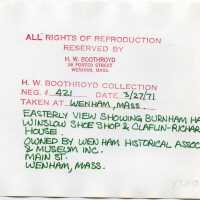 ALL RIGHTS OF REPRODUCTION
RESERVED BY
H. W. BOOTHROYD
STREET
WENHAM, MASS.
H. W. BOOTHROYD COLLECTION
NEG. # 421 DATE 3/27/71
TAKEN AT WENHAM, MASS.
EASTERLY VIEW SHOWING BURNHAM HA
WINSLOW SHOE SHOP & CLAFLIN-RICHAR
HOUSE.
OWNED BY WENHAM HISTORICAL ASSOC
& MUSEUM INC.
MAIN ST.
WENHAM, MASS.